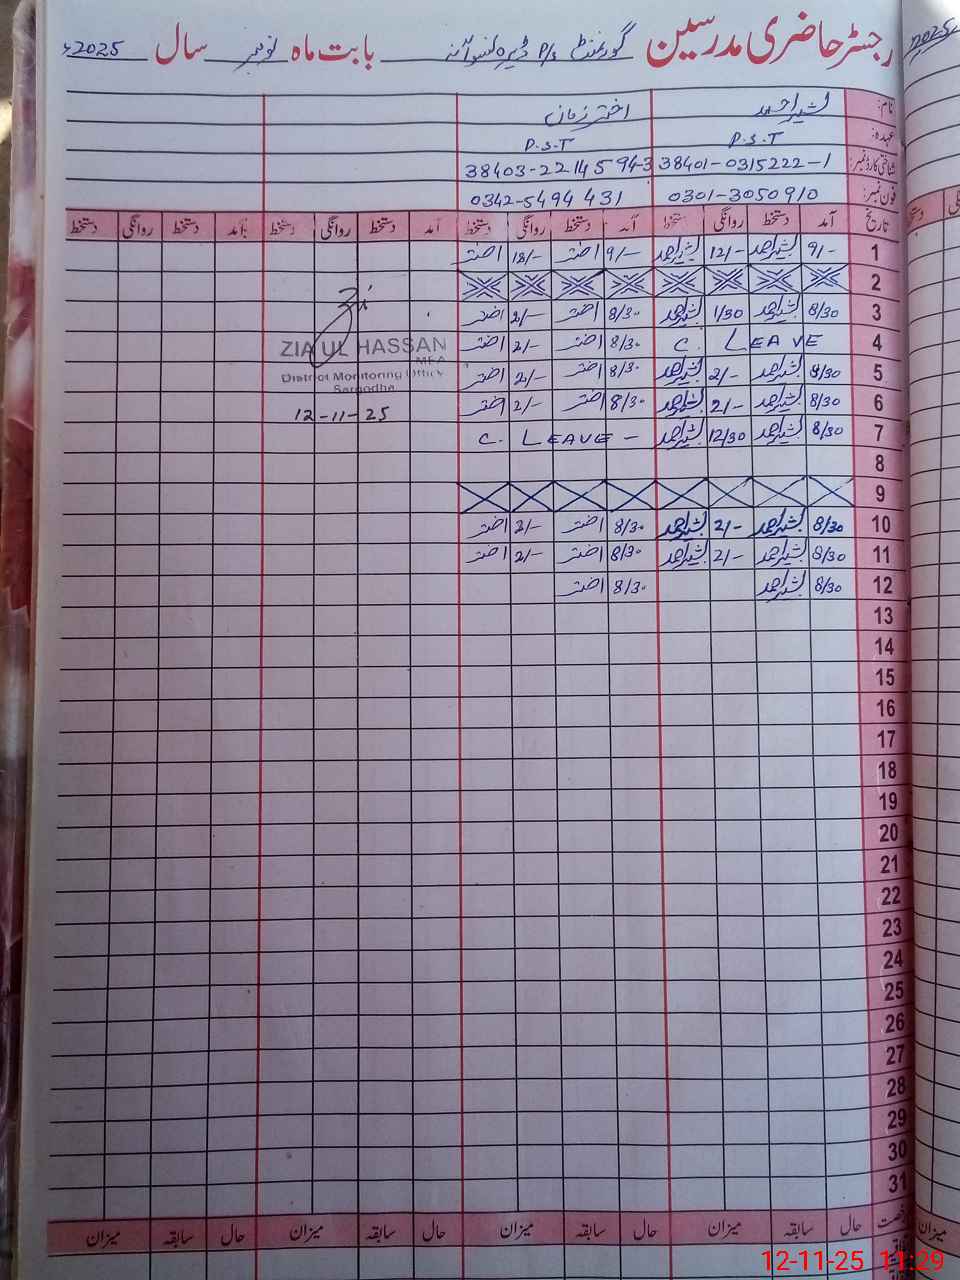 رجسٹر حاضری مدرسین گورنمنٹ P/S ڈیرہ بابت ماہ نومبر سال 2025ء
نام: بشیر احمد اختر زمان
عہدہ: P.S.T P.S.T
شناختی کارڈ نمبر: 38401-0315222-1 38403-2214594-3
فون نمبر: 0301-3050910 0342-5494431
تاریخ آمد دستخط روانگی دستخط آمد دستخط روانگی دستخط آمد دستخط روانگی دستخط آمد دستخط روانگی دستخط
1 9/- بشیر احمد 12/- بشیر احمد 9/- اختر 12/- اختر
2
3 8/30 بشیر احمد 1/30 بشیر احمد 8/30 اختر 2/- اختر
4 C. LEAVE 8/30 اختر 2/- اختر
ZIA UL HASSAN
MEA
5 8/30 بشیر احمد 2/- بشیر احمد 8/30 اختر 2/- اختر
District Monitoring Office
Sargodha
6 8/30 بشیر احمد 2/- بشیر احمد 8/30 اختر 2/- اختر
12-11-25
7 8/30 بشیر احمد 12/30 بشیر احمد C. LEAVE -
8
9
10 8/30 بشیر احمد 2/- بشیر احمد 8/30 اختر 2/- اختر
11 8/30 بشیر احمد 2/- بشیر احمد 8/30 اختر 2/- اختر
12 8/30 بشیر احمد 8/30 اختر
13
14
15
16
17
18
19
20
21
22
23
24
25
26
27
28
29
30
31
رخصت حال سابقہ میزان حال سابقہ میزان حال سابقہ میزان حال سابقہ میزان
12-11-25 11:29